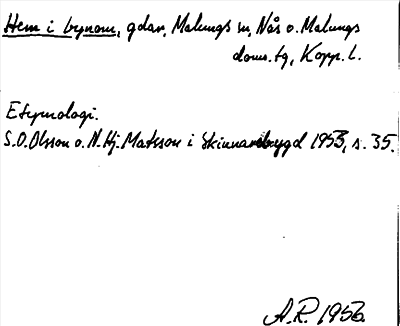 Hem i bynom, gdar, Malungs sn, Nås o. Malungs
doms.tg, Kopp. l.
Etymologi.
S.O. Olsson o. N. Hj. Matsson i Skinnarebygd 1953, s. 35.
A.R. 1956.